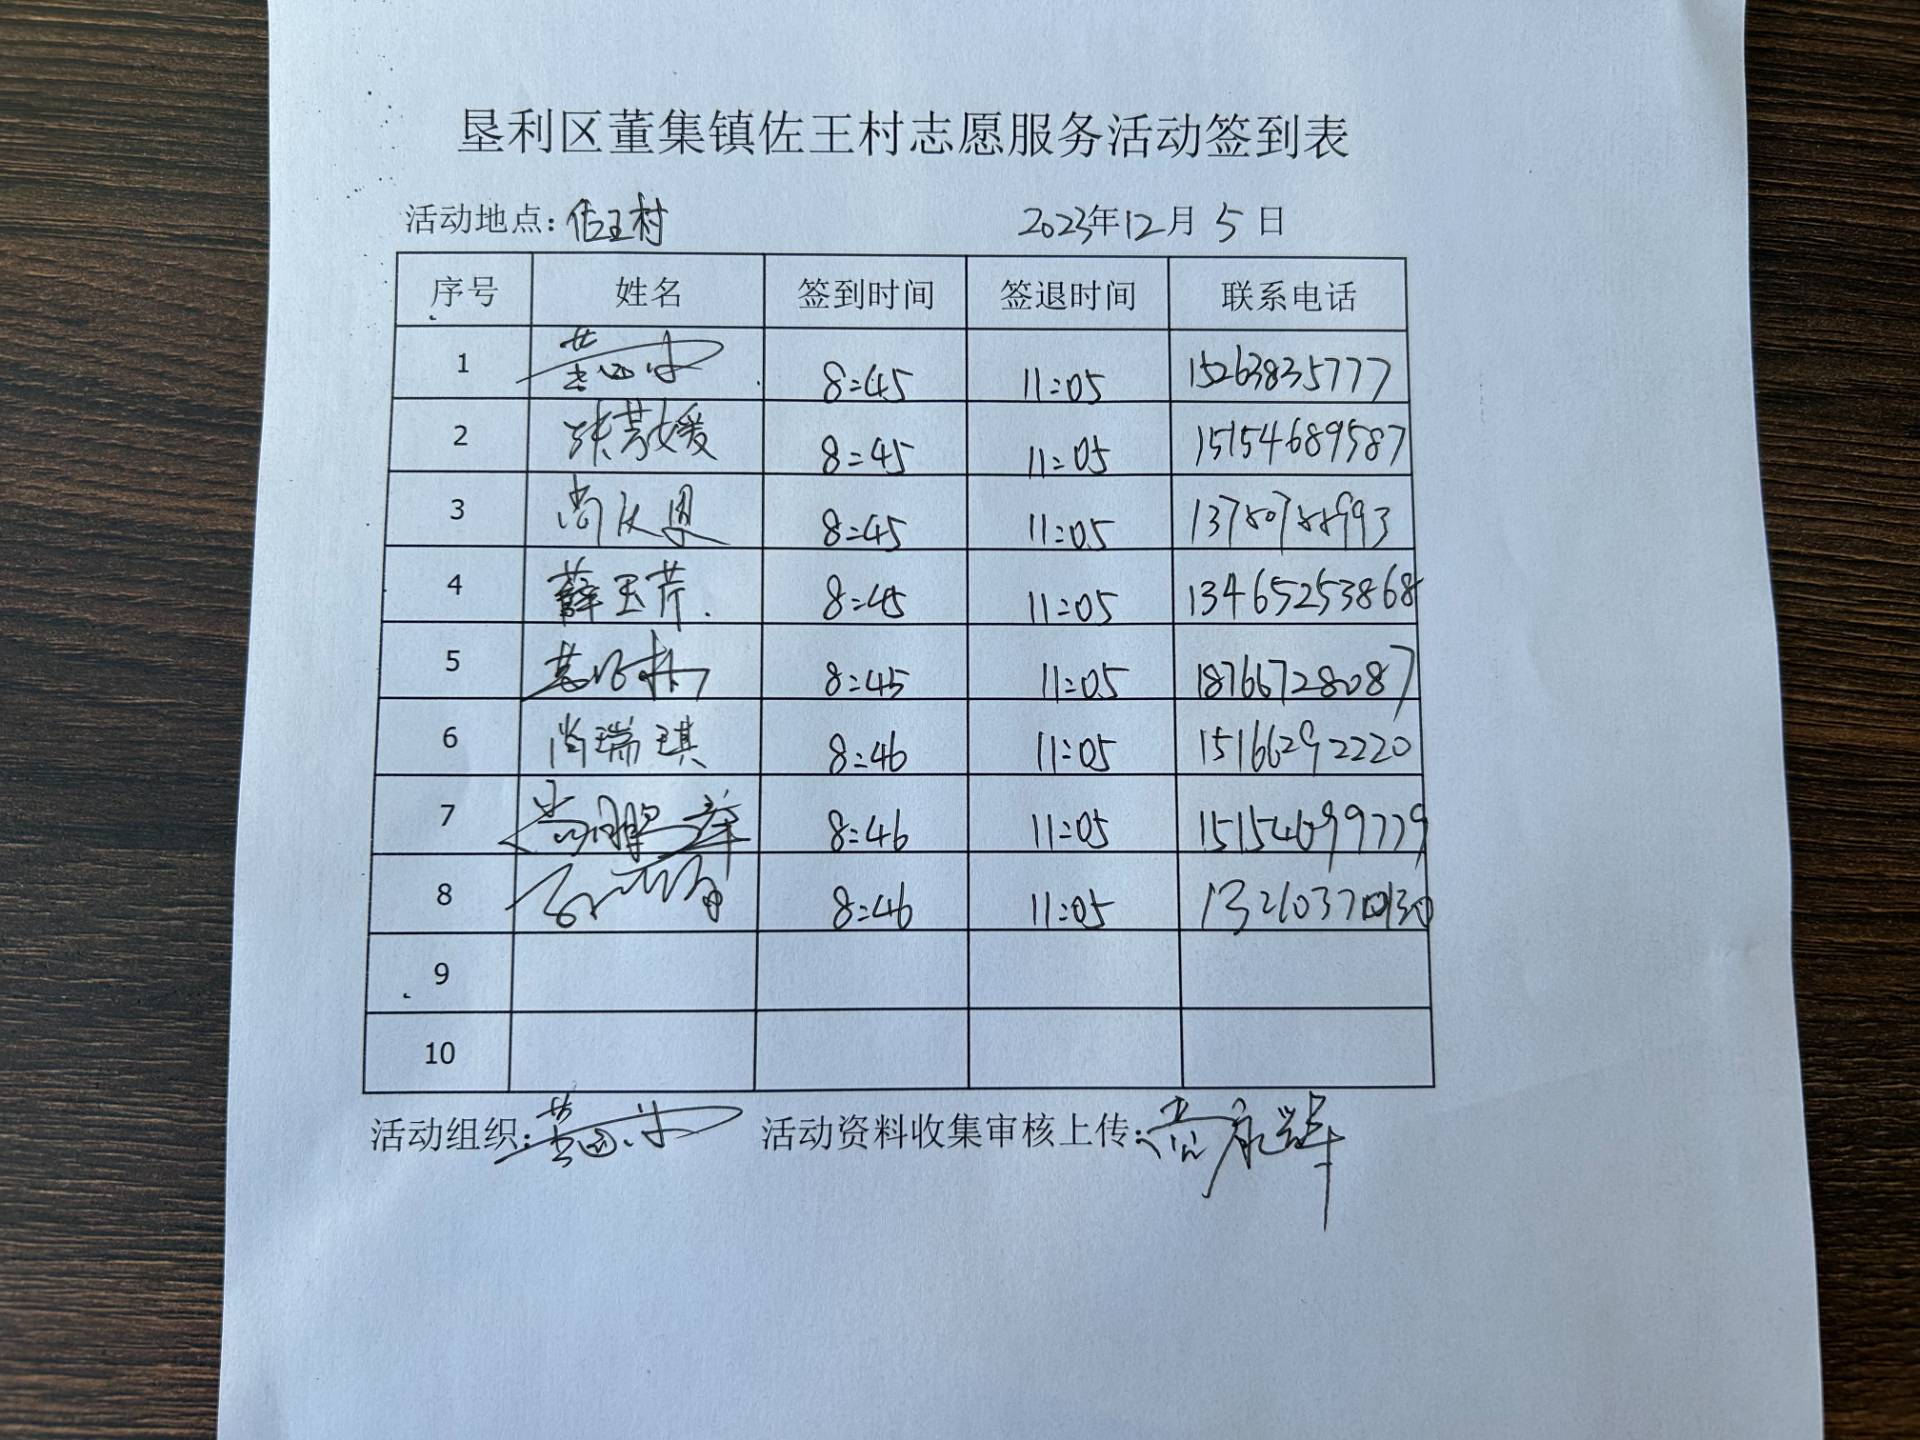 垦利区董集镇佐王村志愿服务活动签到表
活动地点：佐王村 2023年12月5日
序号 姓名 签到时间 签退时间 联系电话
1 8:45 11:05 15263835777
2 8:45 11:05 15154689587
3 尚 8:45 11:05 13780788993
4 薛玉芹 8:45 11:05 13465253868
5 8:45 11:05 18766728087
6 尚瑞琪 8:46 11:05 15166292220
7 尚鹏 8:46 11:05 15154699779
8 8:46 11:05
9
10
活动组织： 活动资料收集审核上传：尚